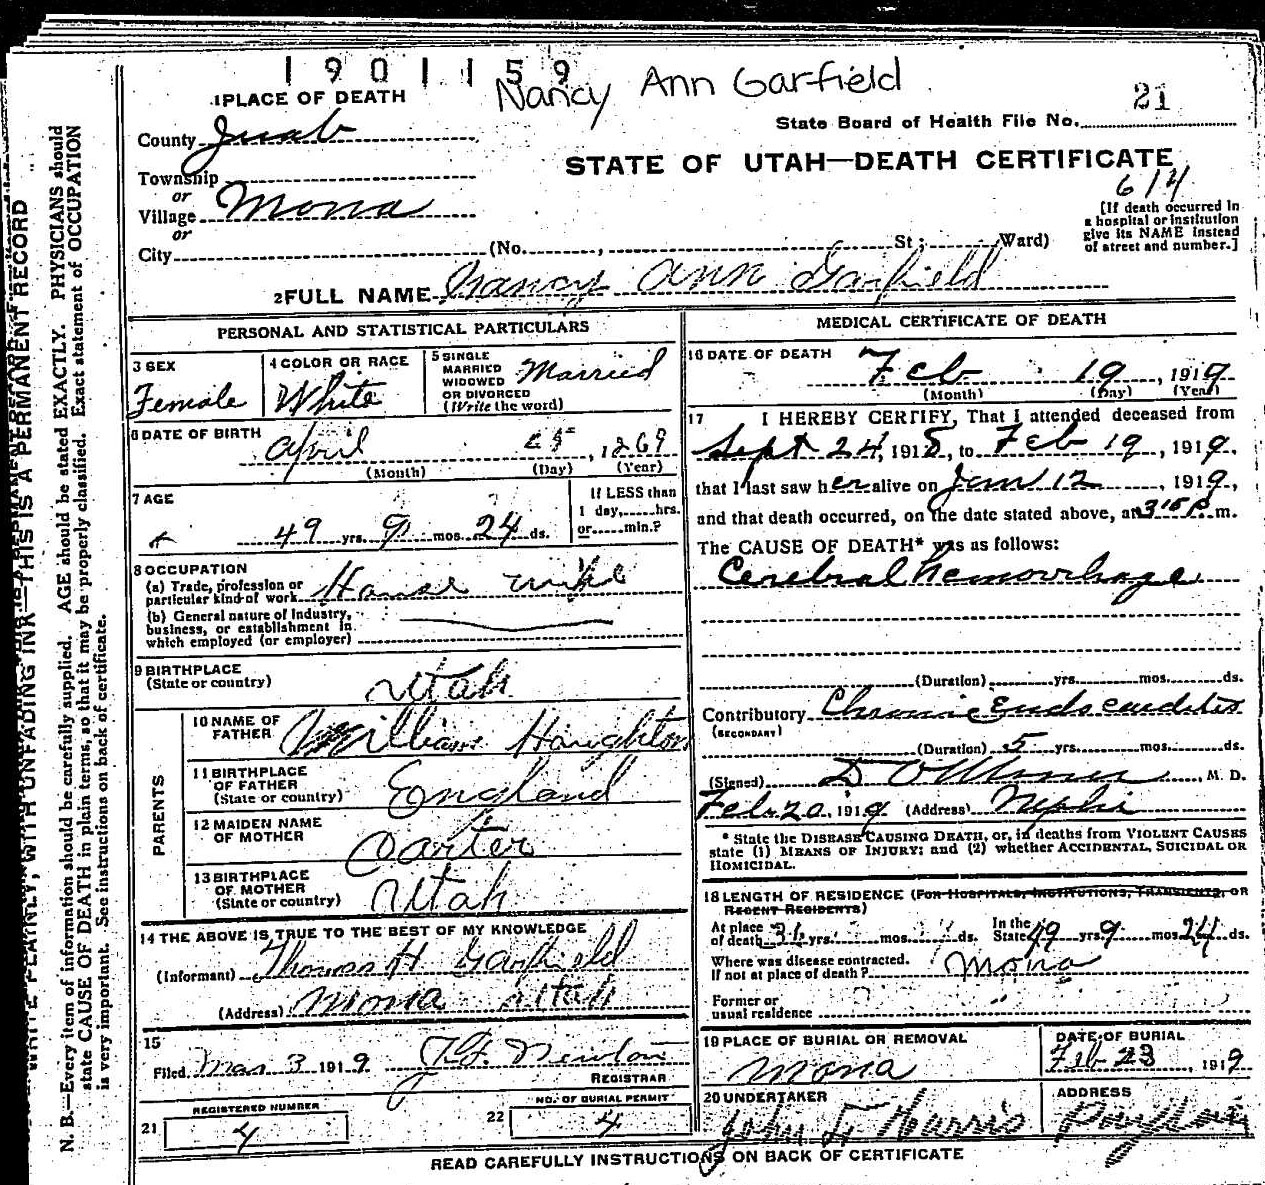 1901159
Nancy Ann Garfield
1 PLACE OF DEATH
21
State Board of Health File No.
County Juab
STATE OF UTAH—DEATH CERTIFICATE
614
Township
or
Village Mona
or
City (No. , St ; Ward)
[If death occurred in
a hospital or institution
give its NAME instead
of street and number.]
2 FULL NAME Nancy Ann Garfield
PERSONAL AND STATISTICAL PARTICULARS
3 SEX
Female
4 COLOR OR RACE
White
5 SINGLE
MARRIED
WIDOWED
OR DIVORCED
(Write the word)
Married
6 DATE OF BIRTH
April , 1869
(Month) (Day) (Year)
7 AGE
49 yrs. 9 mos. 24 ds.
If LESS than
1 day, hrs.
or min.?
8 OCCUPATION
(a) Trade, profession or
particular kind of work House wife
(b) General nature of Industry,
business, or establishment in
which employed (or employer)
9 BIRTHPLACE
(State or country)
Utah
PARENTS
10 NAME OF
FATHER
William Haughton
11 BIRTHPLACE
OF FATHER
(State or country)
England
12 MAIDEN NAME
OF MOTHER
Carter
13 BIRTHPLACE
OF MOTHER
(State or country)
Utah
14 THE ABOVE IS TRUE TO THE BEST OF MY KNOWLEDGE
(Informant) Thomas H Garfield
(Address) Mona Utah
15
Filed Mar 3 1919 Newton
REGISTRAR
REGISTERED NUMBER
21 4
NO. OF BURIAL PERMIT
22 4
MEDICAL CERTIFICATE OF DEATH
16 DATE OF DEATH
Feb 19 , 1919
(Month) (Day) (Year)
17 I HEREBY CERTIFY, That I attended deceased from
Sept 24, 1918, to Feb 19, 1919,
that I last saw her alive on Jan 12, 1919,
and that death occurred, on the date stated above, at 3:15 P m.
The CAUSE OF DEATH* was as follows:
Cerebral hemorrhage
(Duration) yrs. mos. ds.
Contributory Chronic Endocarditis
(SECONDARY)
(Duration) 5 yrs. mos. ds.
(Signed) , M. D.
Feb. 20, 1919 (Address) Nephi
* State the DISEASE CAUSING DEATH, or, in deaths from VIOLENT CAUSES
state (1) MEANS OF INJURY; and (2) whether ACCIDENTAL, SUICIDAL OR
HOMICIDAL.
18 LENGTH OF RESIDENCE (FOR HOSPITALS, INSTITUTIONS, TRANSIENTS, OR
RECENT RESIDENTS)
At place
of death 31 yrs. mos. ds. In the
State 49 yrs. 9 mos. 24 ds.
Where was disease contracted.
If not at place of death? Mona
Former or
usual residence
19 PLACE OF BURIAL OR REMOVAL
Mona
DATE OF BURIAL
Feb 23, 1919
20 UNDERTAKER
John F Harris
ADDRESS
Payson
READ CAREFULLY INSTRUCTIONS ON BACK OF CERTIFICATE
WRITE PLAINLY, WITH UNFADING INK—THIS IS A PERMANENT RECORD
N. B.—Every item of information should be carefully supplied. AGE should be stated EXACTLY. PHYSICIANS should
state CAUSE OF DEATH in plain terms, so that it may be properly classified. Exact statement of OCCUPATION
is very important. See instructions on back of certificate.